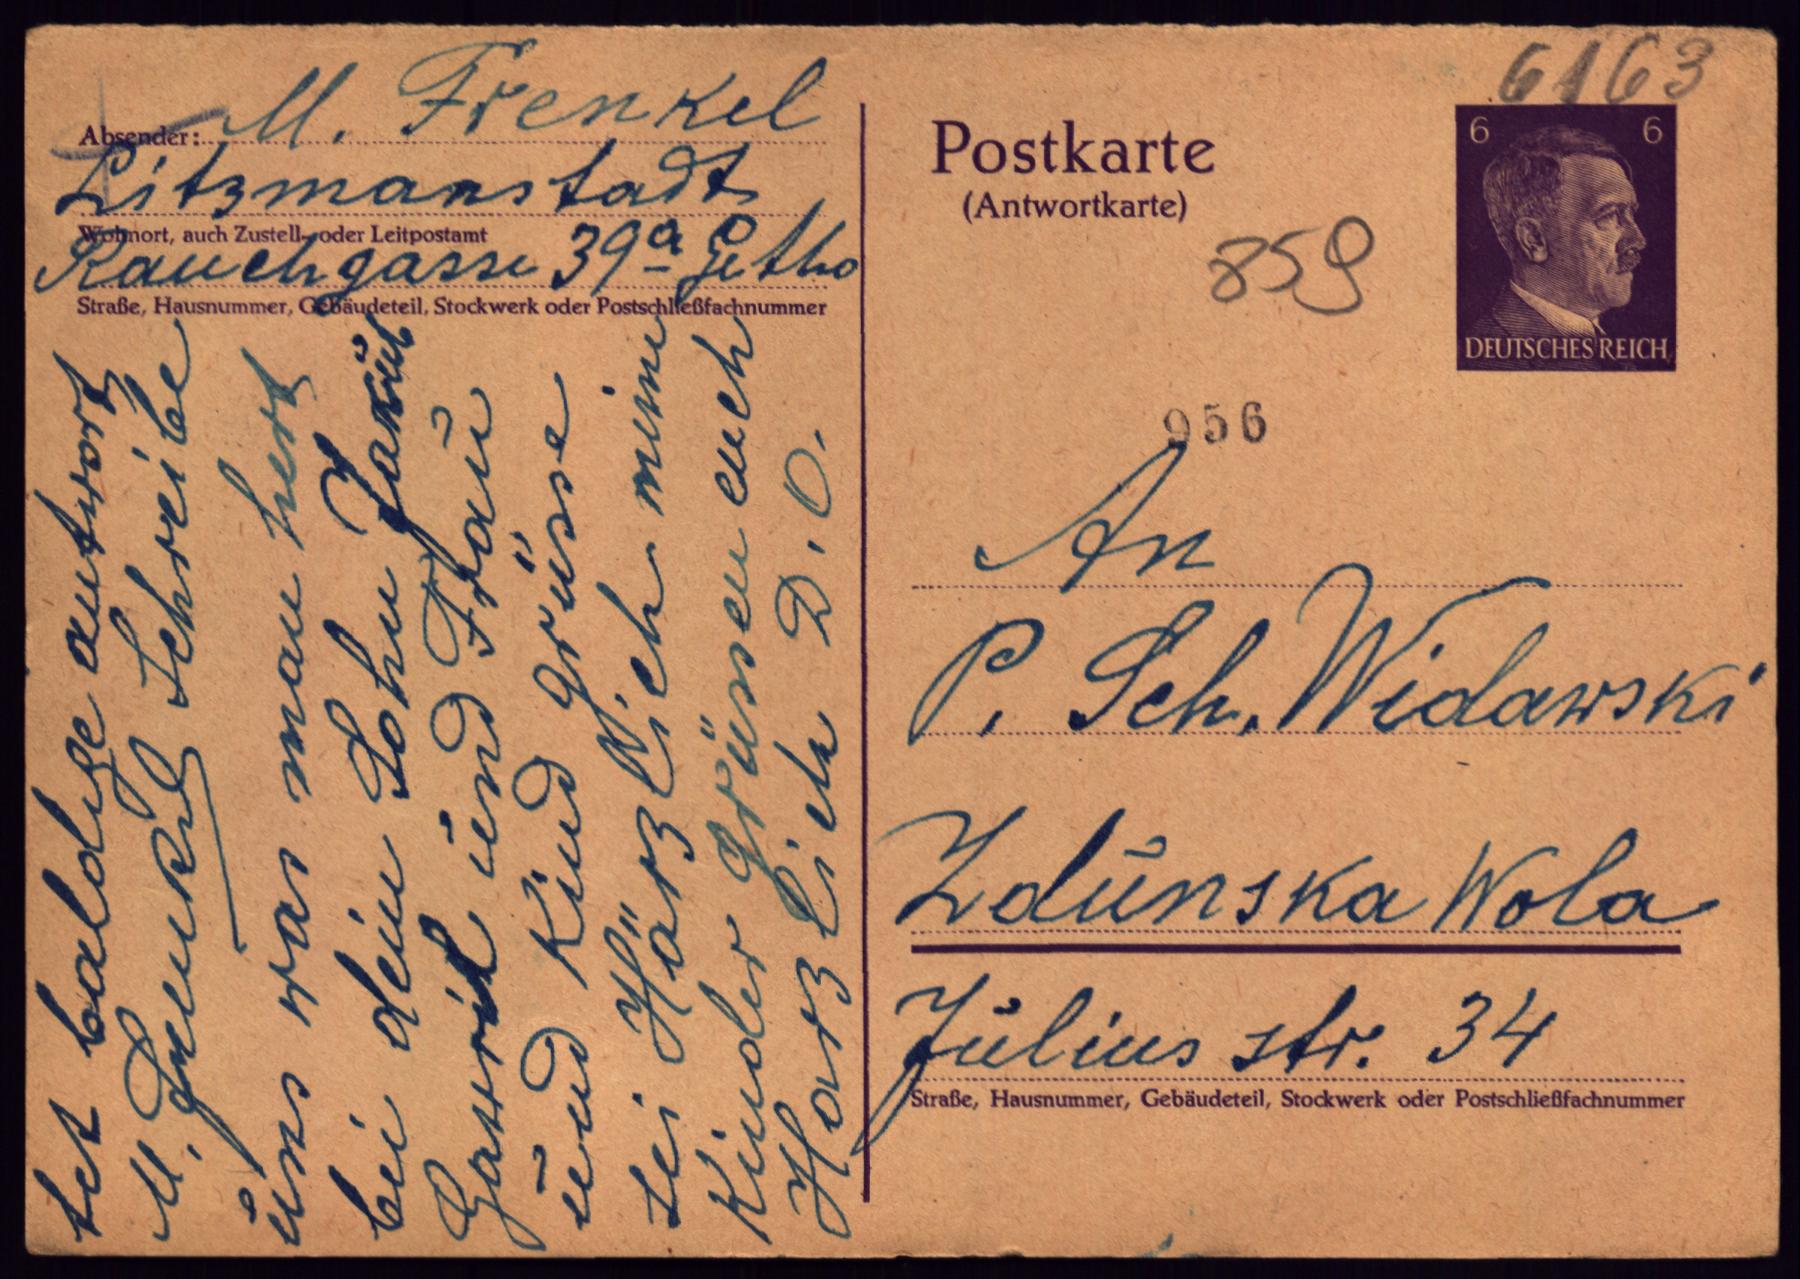 6163
Absender: M. Frenkel
Litzmanstadt
Wohnort, auch Zustell- oder Leitpostamt
Rauchgasse 39a Getho
Straße, Hausnummer, Gebäudeteil, Stockwerk oder Postschließfachnummer
Postkarte
(Antwortkarte)
6 6
DEUTSCHES REICH
859
956
An
P. Sch. Widawski
Zdunska Wola
Julius str. 34
Straße, Hausnummer, Gebäudeteil, Stockwerk oder Postschließfachnummer
tet baldige antwort
M. Frenkel schreibe
uns was man hert
bei dein Sohn
und Frau
und Kind grüse
sei Härzlich mein
Kinder grüsen euch
Harzlich D. O.